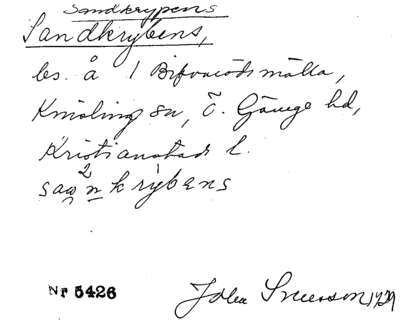 Sandkrypens
Sandkrybens,
bs. å 1 Bifvaröds mölla,
Knislinge sn, Ö. Göinge hd,
Kristianstads l.
sankrybens
Nr 5426
1929